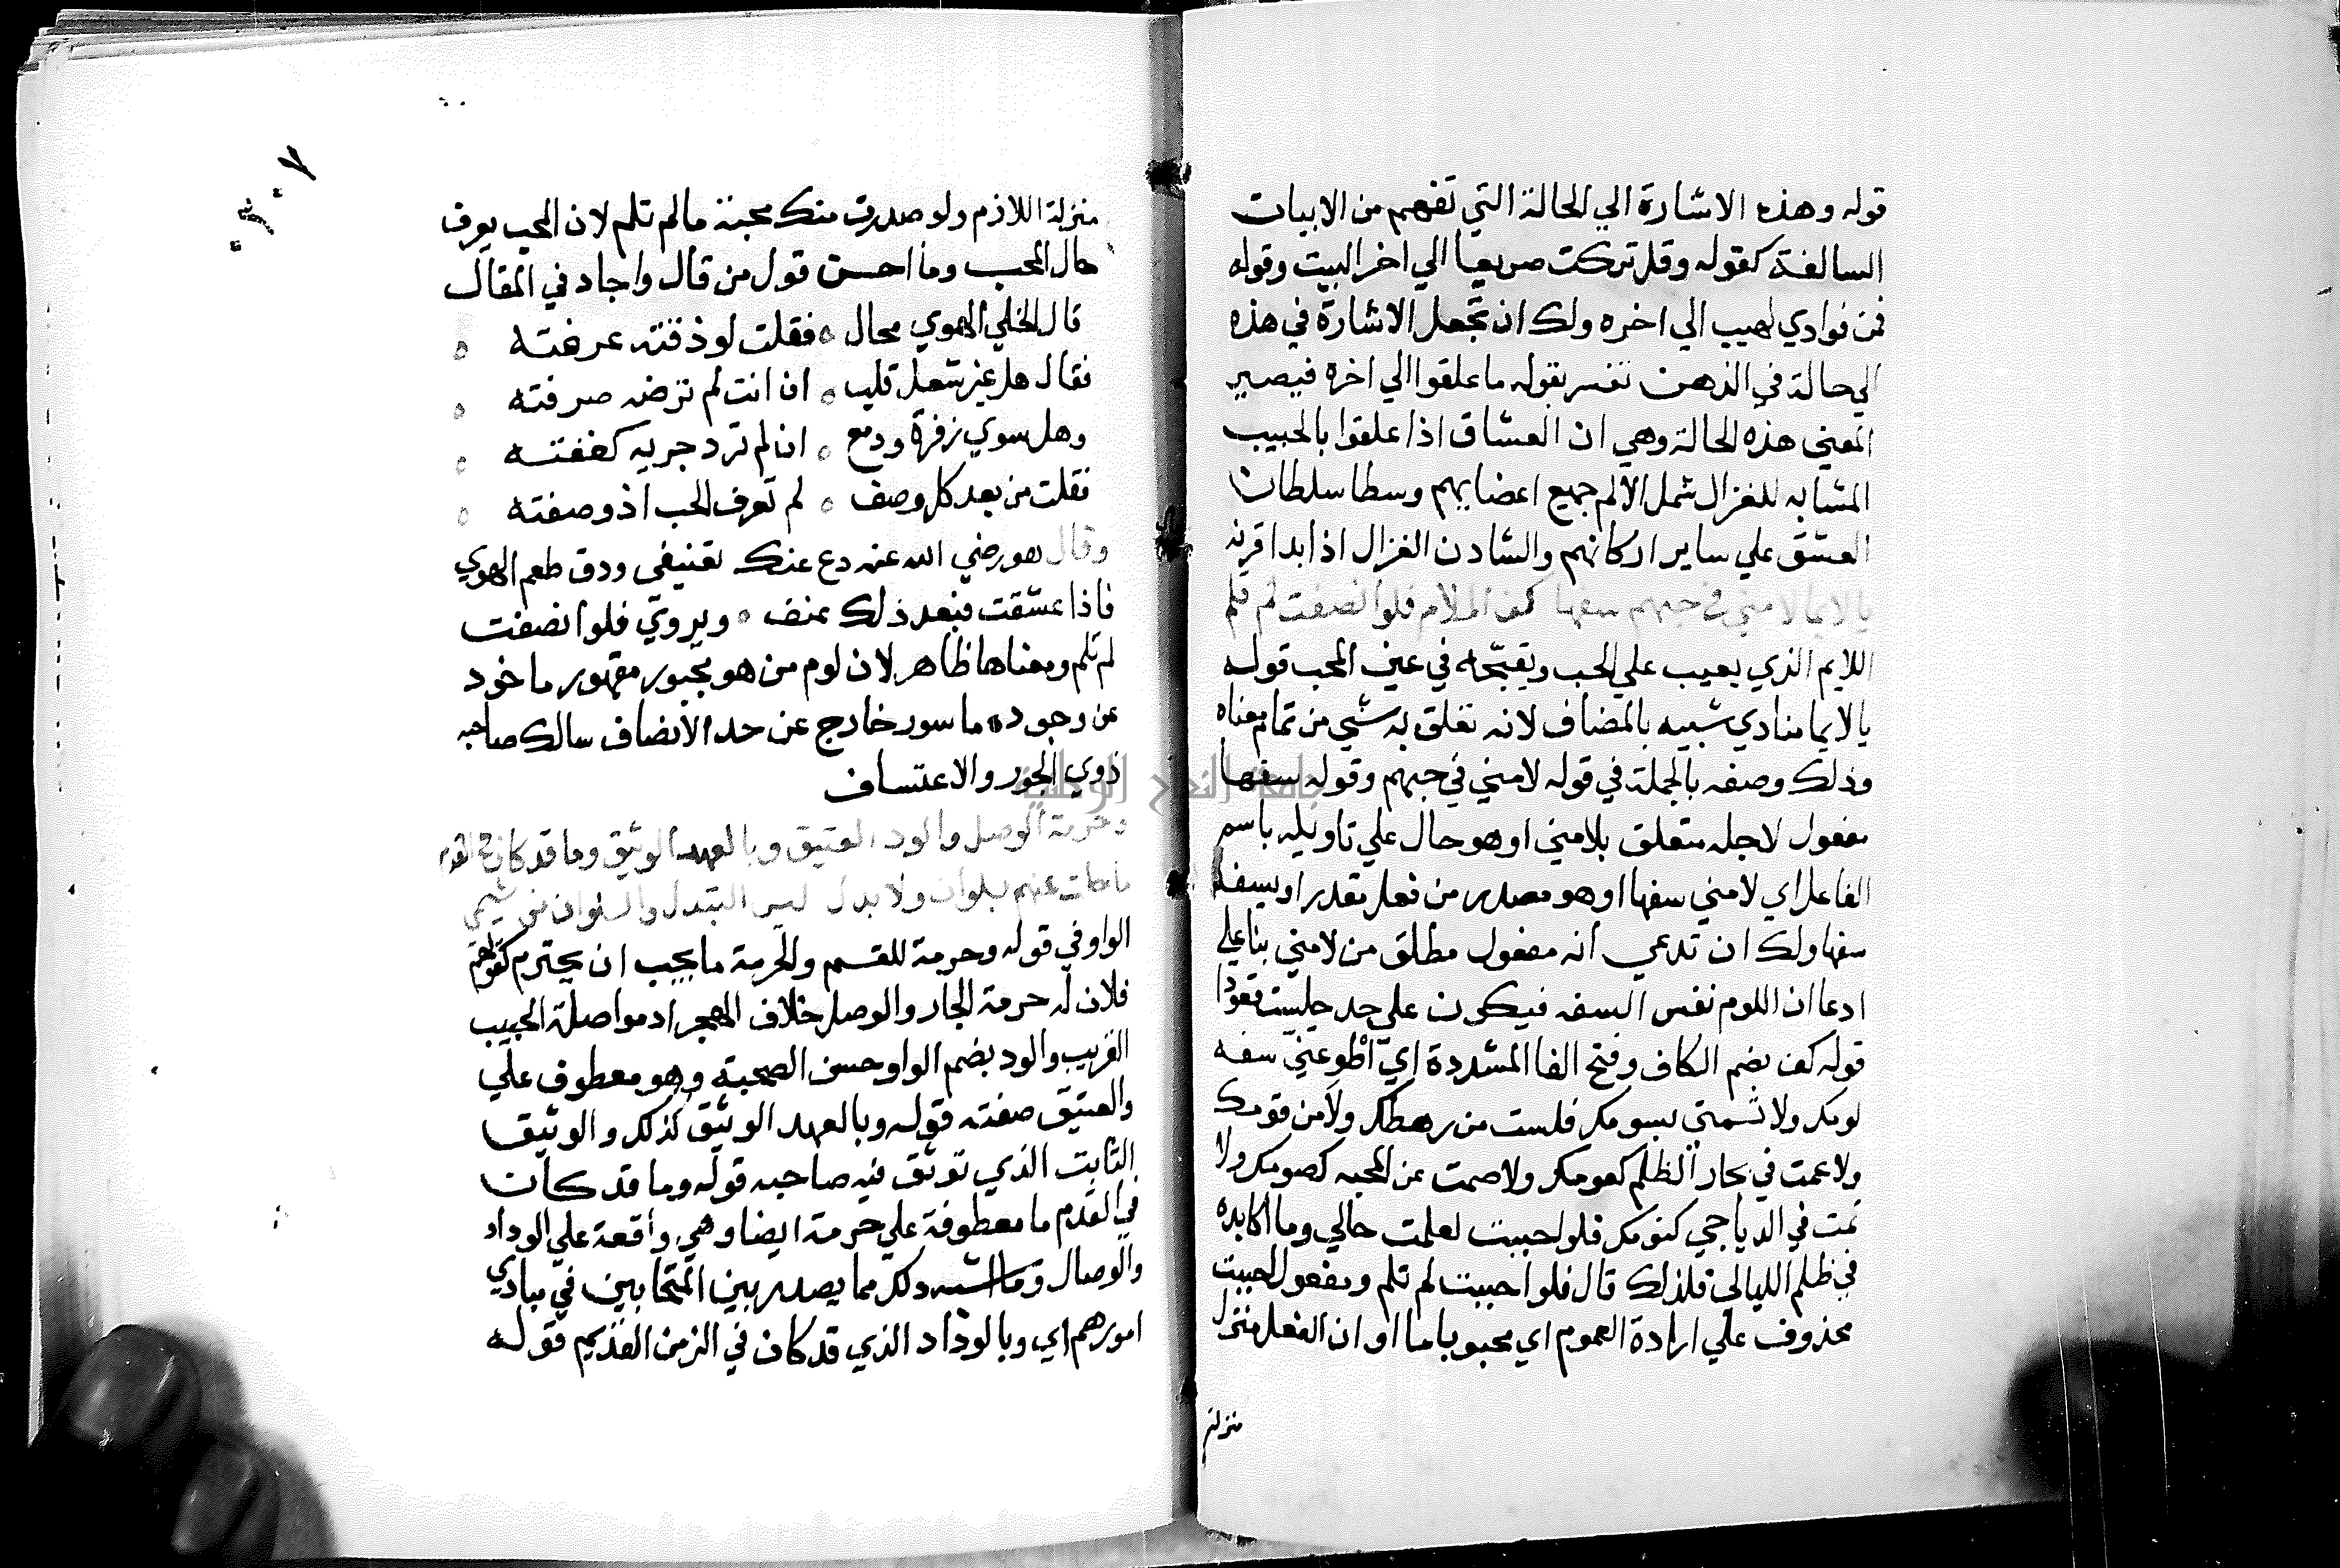 قوله وهذه الاشارة الي الحالة التي تفهم من الابيات
السالفة كقوله وقل تركت صريعا الي اخر البيت وقوله
فمن فوادي لهيب الي اخره ولك ان تجعل الاشارة في هذه
الي حالة في الذهن تفسر بقوله ما علقوا الي اخره فيصير
المعني هذه الحالة وهي ان العشاق اذا علقوا بالحبيب
المشابه للغزال شمل الالم جميع اعضايهم وسطا سلطان
العشق علي ساير اركانهم والشادن الغزال اذا بدا قرنه
يا لايما لامني في حبهم سفها كف الملام فلو انصفت لم تلم
اللايم الذي يعيب علي الحب ويقبحه في عين المحب قوله
يا لايما منادي شبيه بالمضاف لانه تعلق به شي من تمام معناه
وذلك وصفه بالجملة في قوله لامني في حبهم وقوله سفها
مفعول لاجله متعلق بلامني او هو حال علي تاويله باسم
الفاعل اي لامني سفها او هو مصدر من فعل مقدر او يسفه
سفها ولك ان تدعي انه مفعول مطلق من لامني بنا علي
ادعا ان اللوم نفس السفه فيكون علي حد جلست قعودا
قوله كف بضم الكاف وفتح الفا المشددة اي اطو عني سفه
لومك ولا تسمني بسومك فلست من رهطك ولا من قومك
ولا عمت في بحار الظلم كعومك ولا صمت عن المحبه كصومك ولا
نمت في الدياجي كنومك فلو احببت لعلمت حالي وما اكابده
في ظلم الليالي فلذلك قال فلو احببت لم تلم ومفعول احببت
محذوف علي ارادة العموم اي محبوبا ما او ان الفعل منزل
منزلة
٣٠٧
منزلة اللازم ولو صدرت منك محبة ما لم تلم لان المحب يعرف
حال المحب وما احسن قول من قال واجاد في المقال
قال الخلي الهوي محال ه فقلت لو ذقته عرفته ه
فقال هل غير شغل قلب ه ان انت لم ترضه صرفته ه
وهل سوي زفرة ودمع ه ان لم ترد جريه كففته ه
فقلت من بعد كل وصف ه لم تعرف الحب اذ وصفته ه
وقال هو رضي الله عنه دع عنك تعنيفي وذق طعم الهوي
فاذا عشقت فبعد ذلك عنف ه ويروي فلو انصفت
لم تلم ومعناها ظاهر لان لوم من هو مجبور مقهور ماخود
عن وجوده ماسور خارج عن حد الانصاف سالك صاحبه
ذوي الجور والاعتساف
وحرمة الوصل والود العتيق وبالعهد الوثيق وما قد كان في القدم
ما حلت عنهم بسلوان ولا بدل ليس التبدل والسلوان من شيمي
الواو في قوله وحرمة للقسم والحرمة ما يجب ان يحترم كقولهم
فلان له حرمة الجار والوصل خلاف الهجر اد مواصلة الحبيب
القريب والود بضم الواو حسن الصحبة وهو معطوف علي
والعتيق صفته قوله وبالعهد الوثيق كذلك والوثيق
الثابت الذي توثق فيه صاحبه قوله وما قد كان
في القدم ما معطوفة علي حرمة ايضا وهي واقعة علي الوداد
والوصال وما اشبه دلك مما يصدر بين المتحابين في مبادي
امورهم اي وبالوداد الذي قد كان في الزمن القديم قوله
جامعة النجاح الوطنية